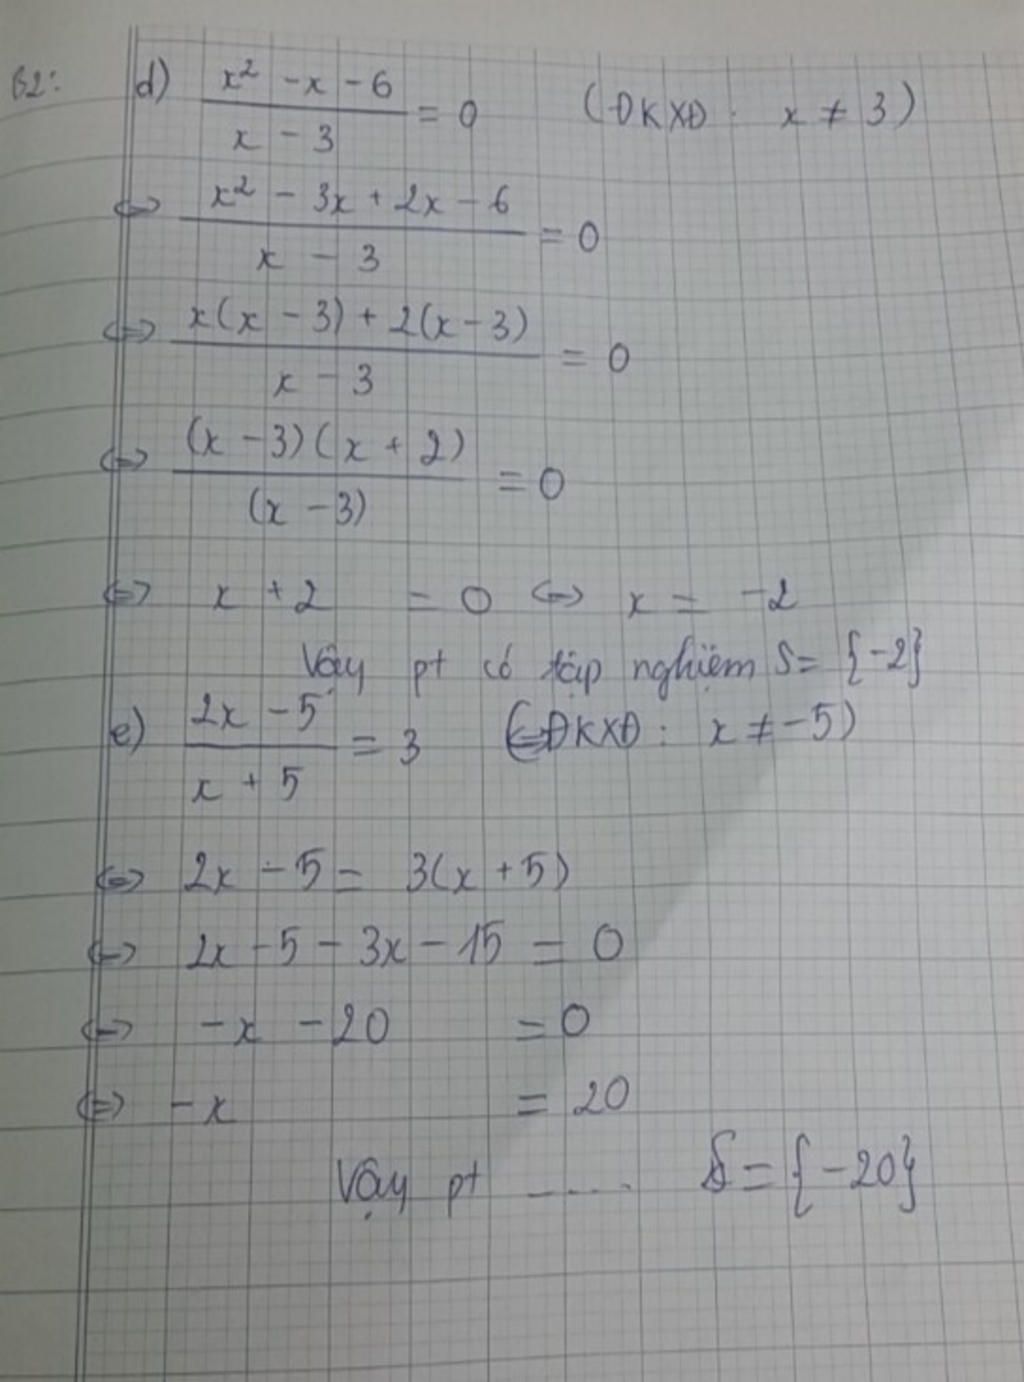 B2: d) x² - x - 6 / x - 3 = 0 (ĐKXĐ : x ≠ 3)
⇔ x² - 3x + 2x - 6 / x - 3 = 0
⇔ x(x - 3) + 2(x - 3) / x - 3 = 0
⇔ (x - 3)(x + 2) / (x - 3) = 0
⇔ x + 2 = 0 ⇔ x = -2
Vậy pt có tập nghiệm S = {-2}
e) 2x - 5 / x + 5 = 3 (ĐKXĐ : x ≠ -5)
⇔ 2x - 5 = 3(x + 5)
⇔ 2x - 5 - 3x - 15 = 0
⇔ -x - 20 = 0
⇔ -x = 20
Vậy pt ..... S = {-20}